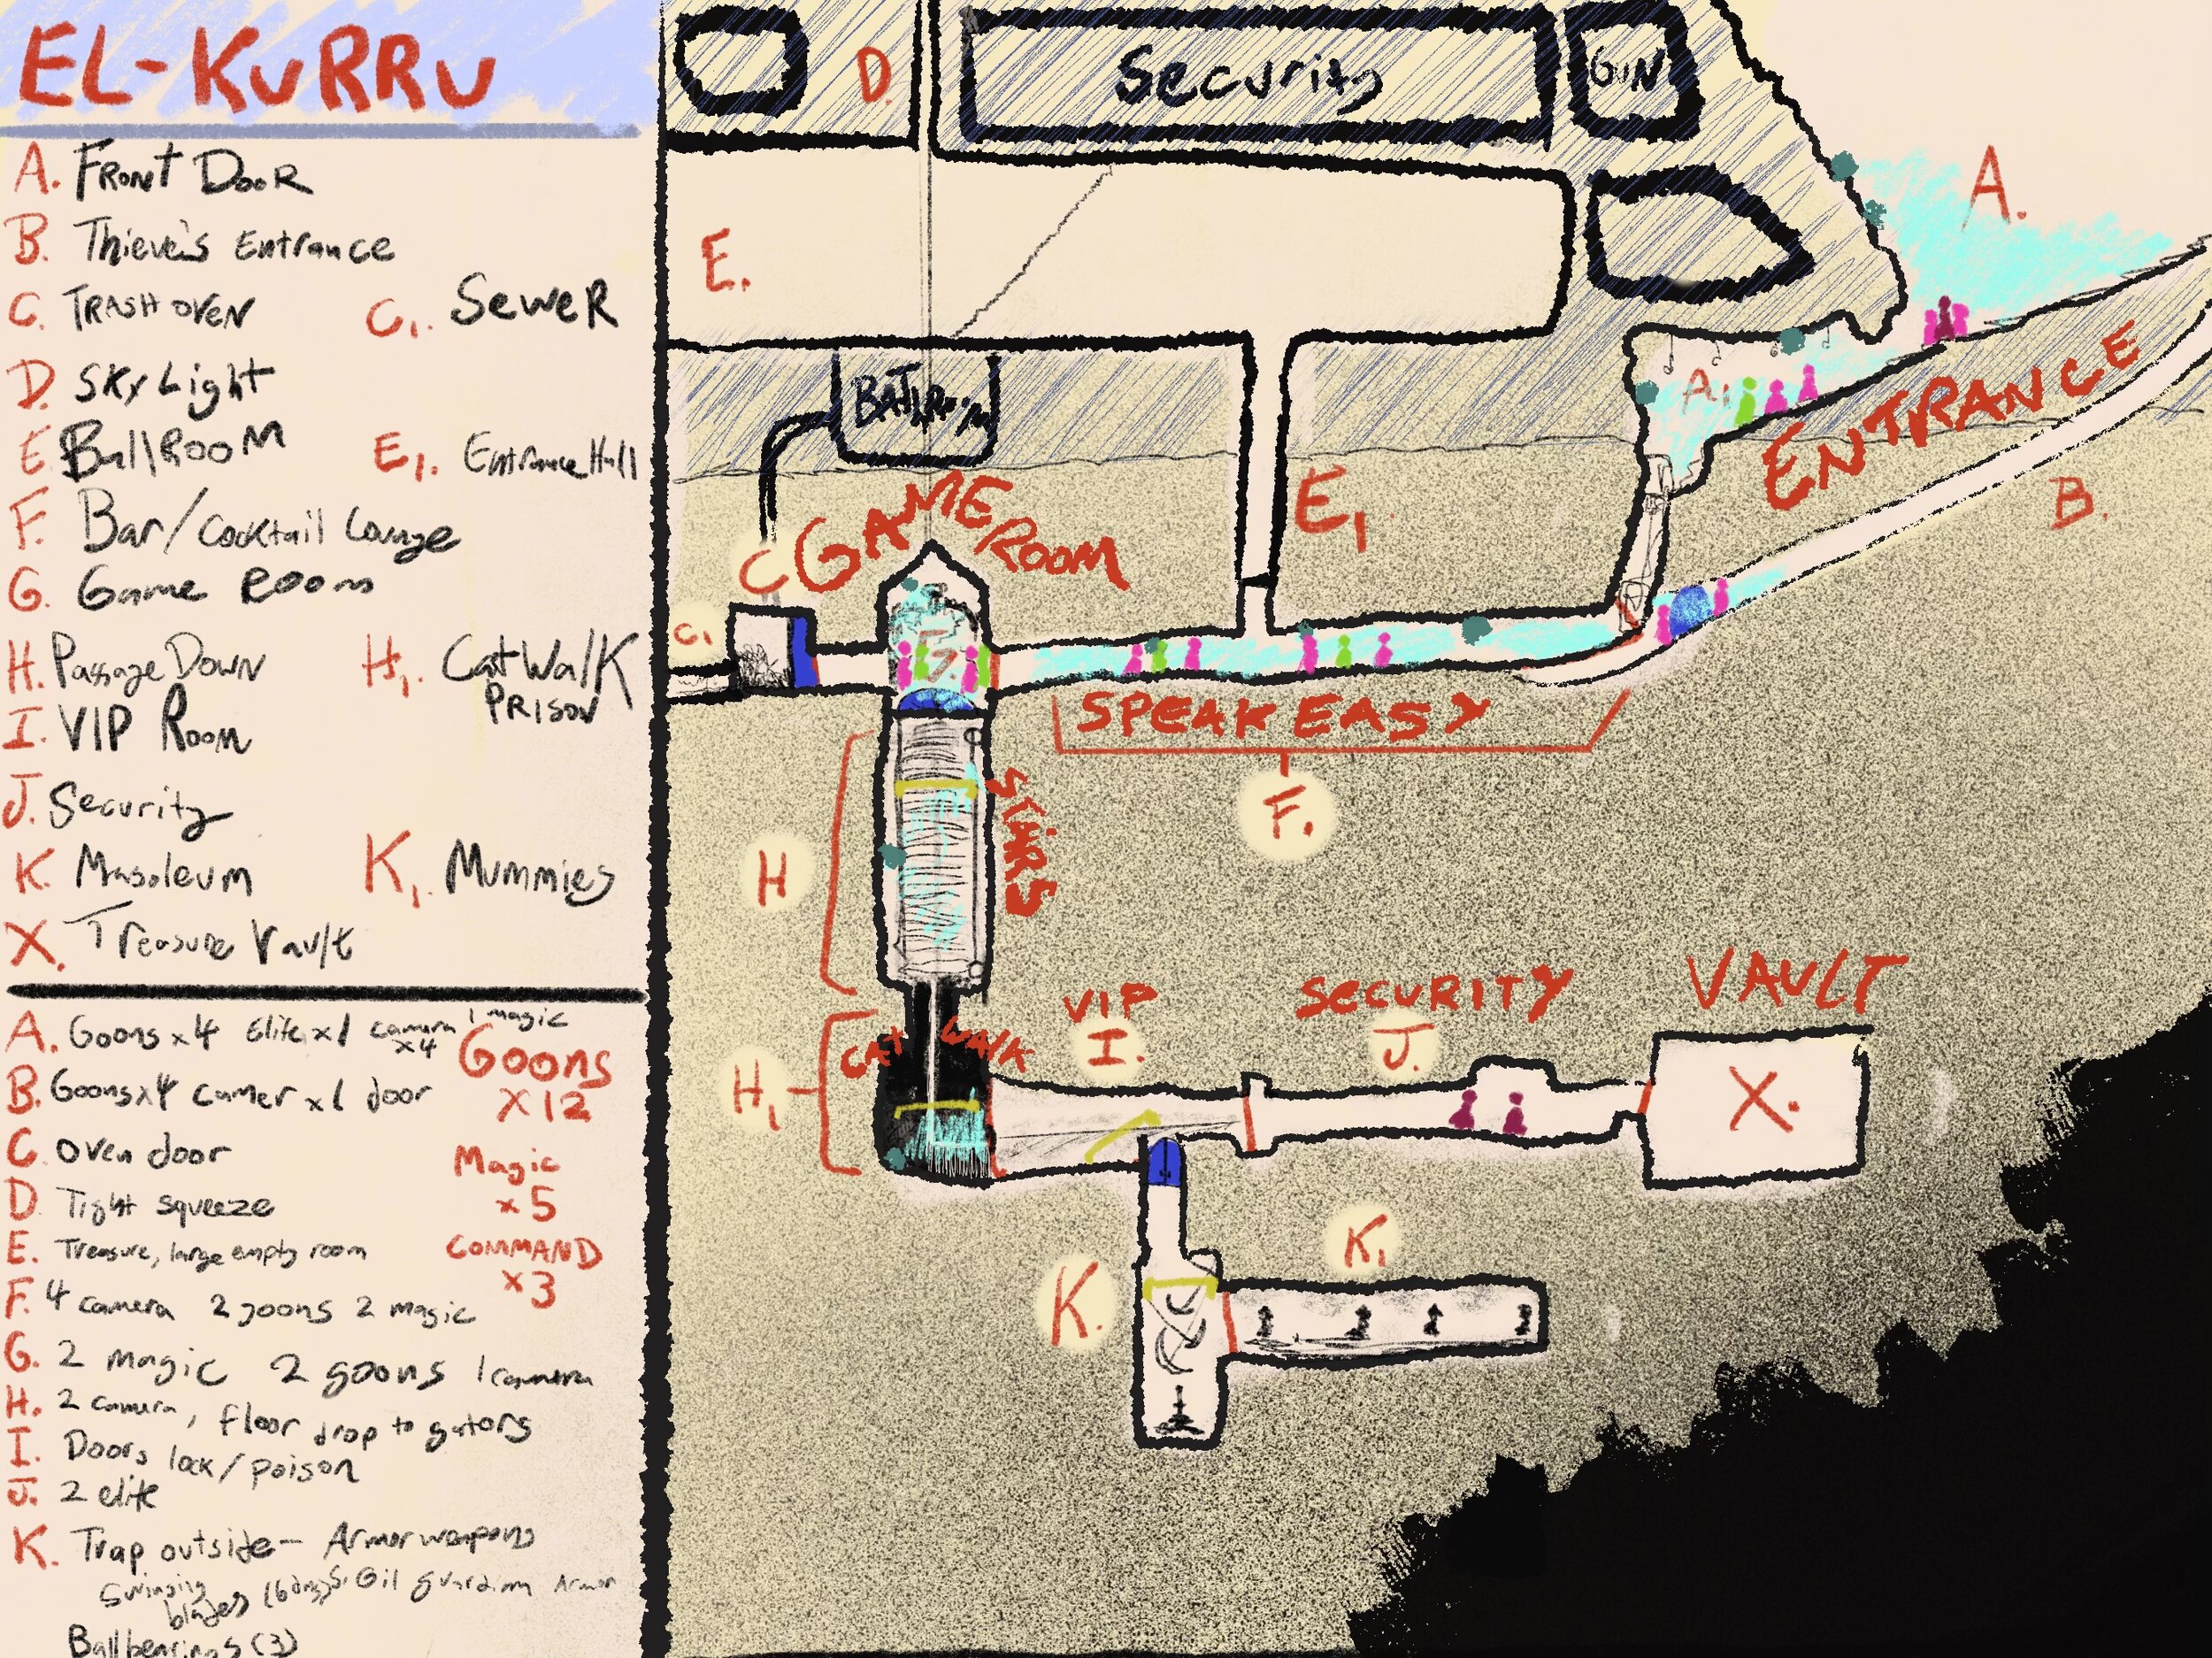 EL-KURRU
A. FRONT DOOR
B. Thieve's Entrance
C. TRASH OVEN C1. SeweR
D. SKyLight
E BallROOM E1. Entrance Hall
F. Bar/Cocktail Lounge
G. Game Room
H. Passage Down H1. CatWalK
PRISON
I. VIP Room
J. Security
K. Masoleum K1. Mummies
X. Treasure Vault
A. Goons x4 Elite x1 camera x4 1 magic
Goons
x12
B. Goonsx4 camer x1 door
C. oven door
Magic
x5
D Tight squeeze
E. Treasure, large empty room
COMMAND
x3
F. 4 camera 2 goons 2 magic
G. 2 magic 2 goons 1 camera
H. 2 camera, floor drop to gators
I. Doors lock/poison
J. 2 elite
K. Trap outside- Armor weapons
Swinging blades (6dmg) guardian Armor
Ballbearings (3)
D.
Security
GUN
A.
E.
A1
ENTRANCE
B.
BATHROOM
E1
GAME ROOM
C
C1
G.
SPEAKEASY
F.
H
STAIRS
CAT WALK
H1
VIP
I.
SECURITY
J.
VAULT
X.
K.
K1